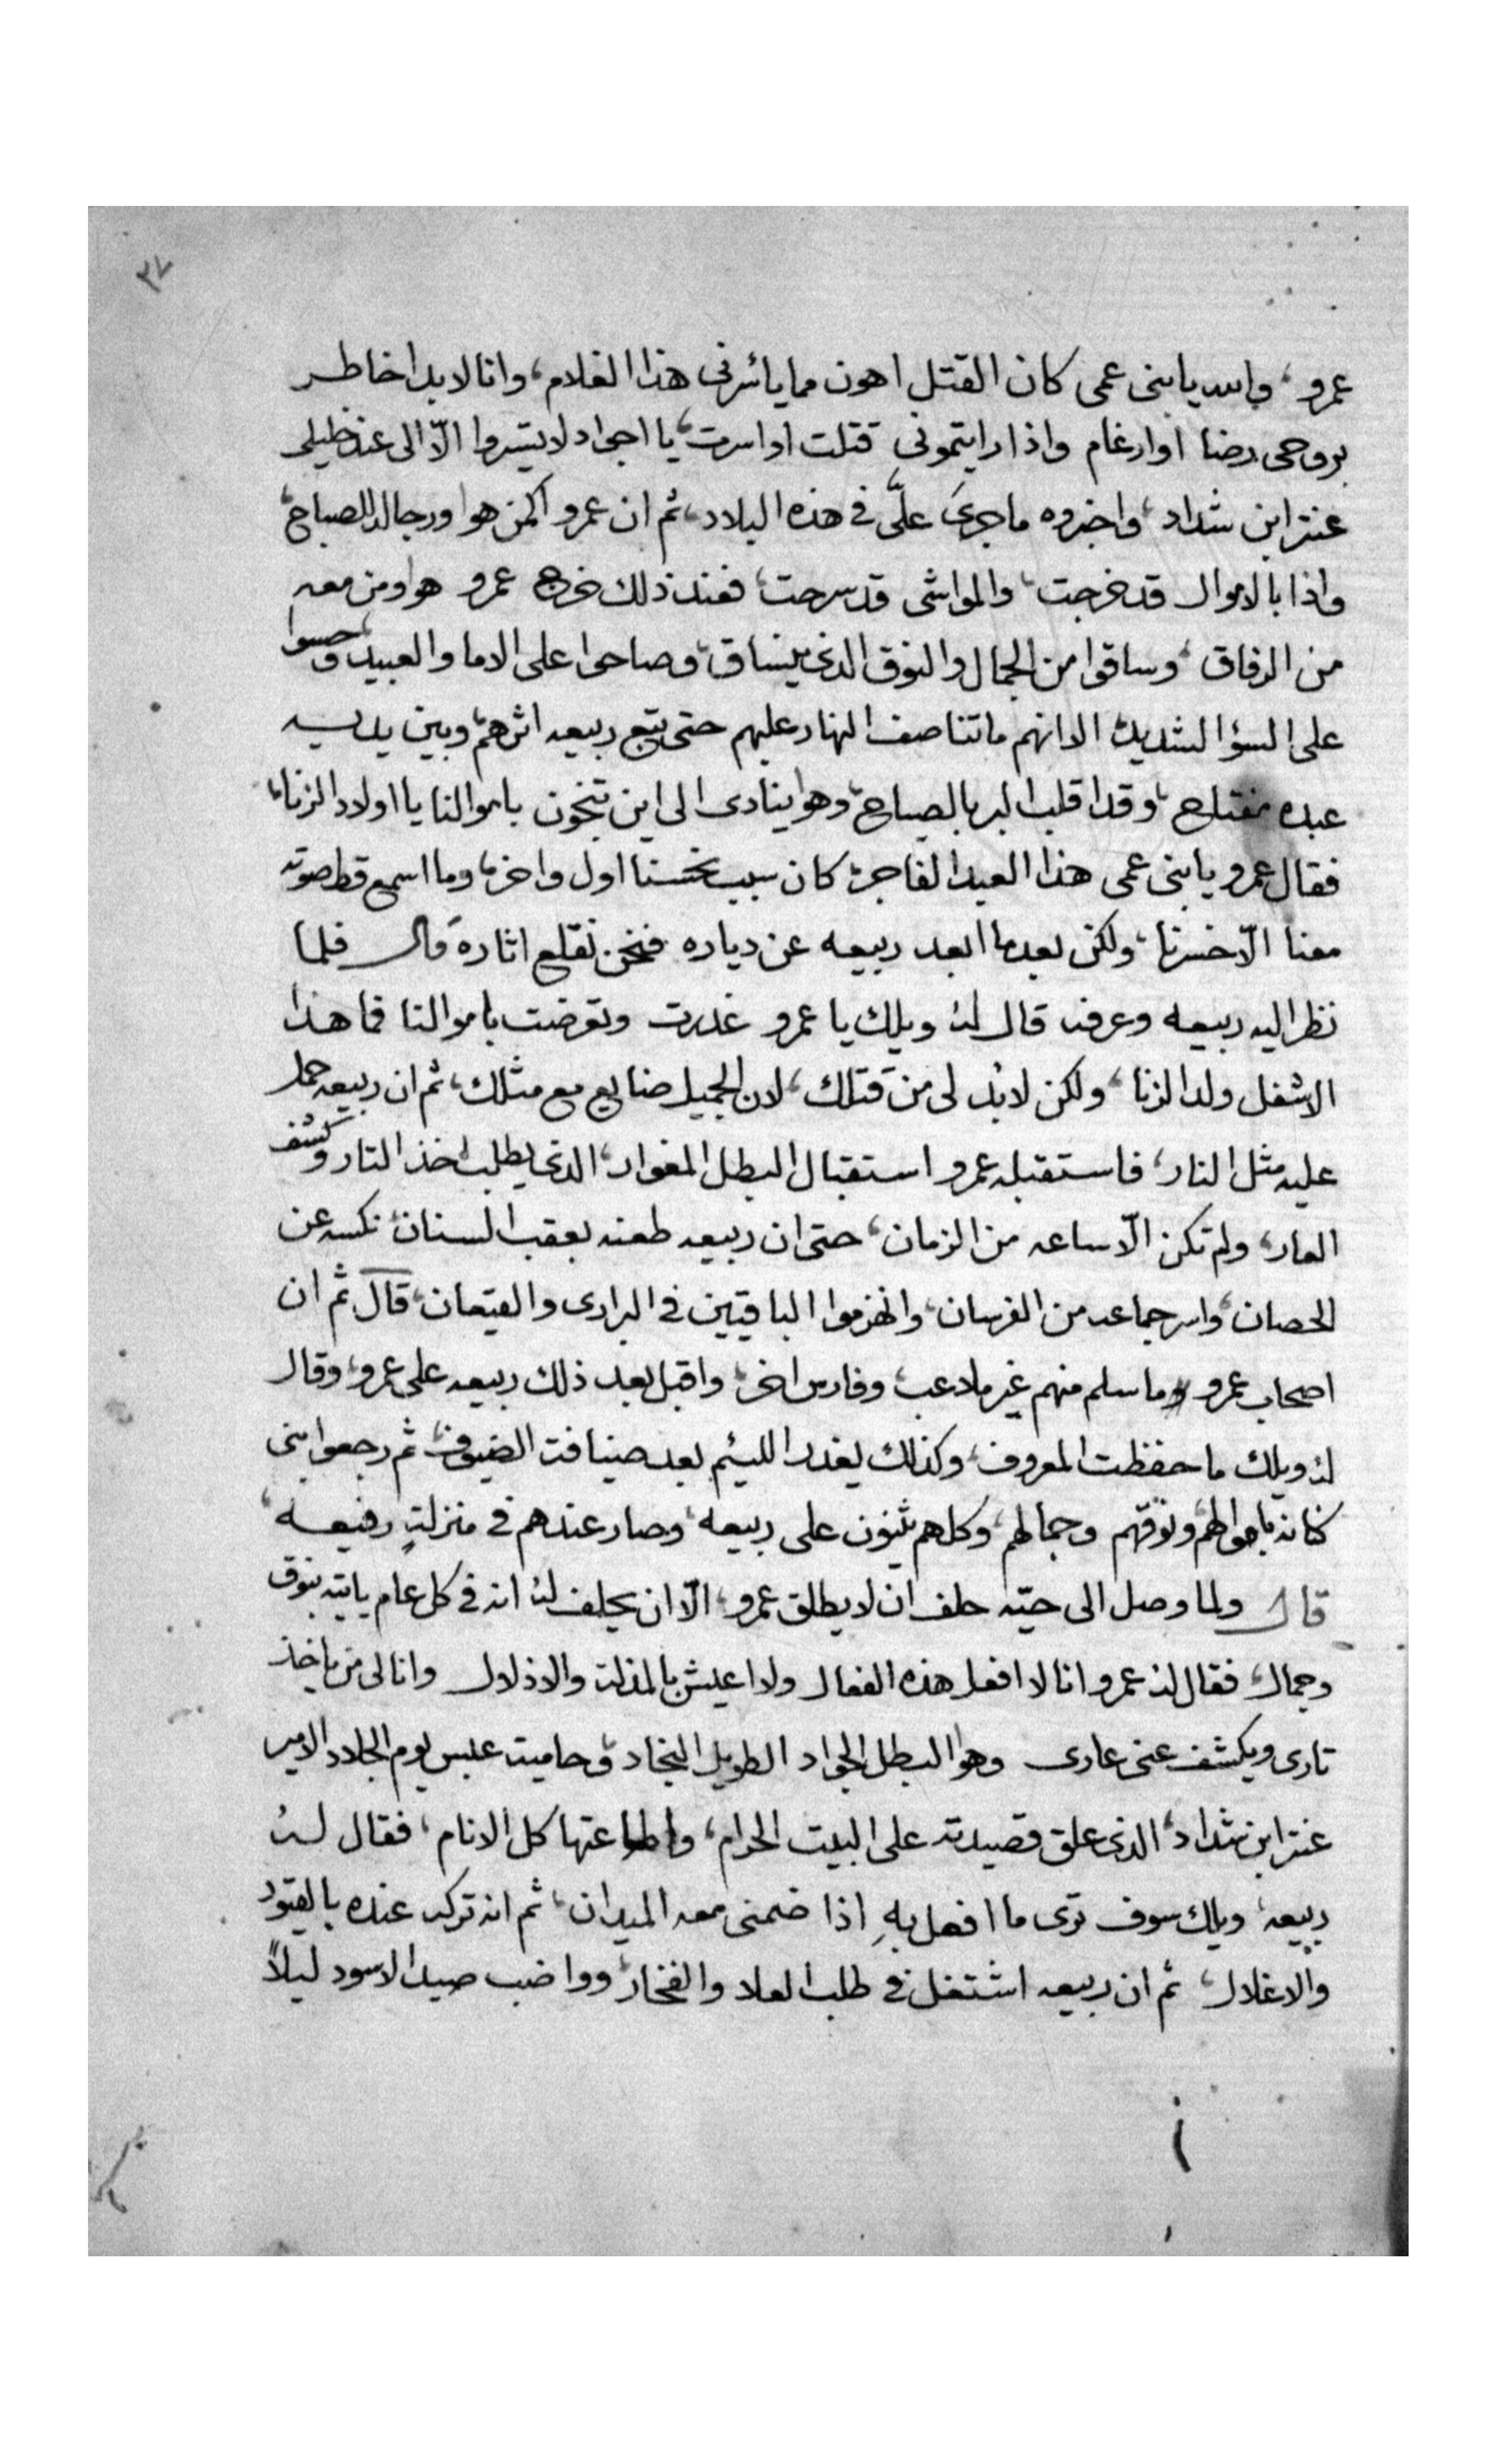 ٣٧
عمرو، والله يا بنى عمى كان القتل اهون مما يأسرنى هذا الغلام، وانا لابد اخاطر
بروحى رضا اوارغام واذا رايتمونى قتلت او اسرت، يا اجواد لا تسيروا الّا الى عند خليلى
عنتر ابن شداد، واخبروه ما جرى علىَّ فى هذه البلاد، ثم ان عمرو اكمن هوا ورجاله للصباح،
واذا بالاموال قد خرجت، والمواشى قد سرحت، فعند ذلك خرج عمرو هوا ومن معه
من الرفاق، وساقوا من الجمال والنوق الذى ينساق، وصاحوا على الاما والعبيد، وحسوا
على السؤ الشديد، الا انهم ما تناصف النهار عليهم حتى تبع ربيعه اثرهم، وبين يديه
عبده مفتاح، وقد اقلب البر بالصياح، وهوا ينادى الى اين تنجون باموالنا يا اولاد الزنا،
فقال عمرو يا بنى عمى هذا العبد الفاجر، كان سبب نحسنا اول واخر، وما اسمع قط صوته
معنا الّا خسرنا، ولكن بعدما ابعد ربيعه عن دياره فنحن نقلع اثاره قال فلما
نظر اليه ربيعه وعرفه قال له ويلك يا عمرو غدرت وتعرضت باموالنا فما هذا
الا شغل ولد الزنا، ولكن لابُد لى من قتلك، لان الجميل ضايع مع مثلك، ثم ان ربيعه حمل
عليه مثل النار، فاستقبله عمرو استقبال البطل المغوار، الذى يطلب اخذ التار وكشف
العار، ولم تكن الّا ساعه من الزمان، حتى ان ربيعه طعنه بعقب السنان، نكسه عن
الحصان، واسر جماعه من الفرسان، وانهزموا الباقيين فى البرارى والقيعان، قال ثم ان
اصحاب عمرو وما سلم منهم غير ملاعب، وفارس اخر، واقبل بعد ذلك ربيعه على عمرو، وقال
له ويلك ما حفظت المعروف، وكذلك يغدر اللئيم بعد ضيافت الضيوف، ثم رجعوا بنى
كنانه باموالهم، ونوقهم وجمالهم، وكلهم يثنون على ربيعه، وصار عندهم فى منزلتٍ رفيعه،
قال ولما وصل الى حيّه حلف ان لا يطلق عمرو، الّا ان يحلف له انه فى كل عام ياتيه بنوق
وجمال، فقال له عمرو انا لا افعل هذه الفعال ولا اعيش بالمذلة والاذلال وانا لى من ياخذ
تارى ويكشف عنى عارى وهوا البطل الجواد الطويل النجاد، وحاميت عبس يوم الجلاد الامير
عنتر ابن شداد، الذى علق قصيدته على البيت الحرام، واطاعتها كل الانام، فقال له
ربيعه، ويلك سوف ترى ما افعل بهِ اذا ضمنى معه الميدان، ثم انه تركه عنده بالقيود
والاغلال، ثم ان ربيعه اشتغل فى طلب العلا والفخار، وواضب صيد الاسود ليلاً